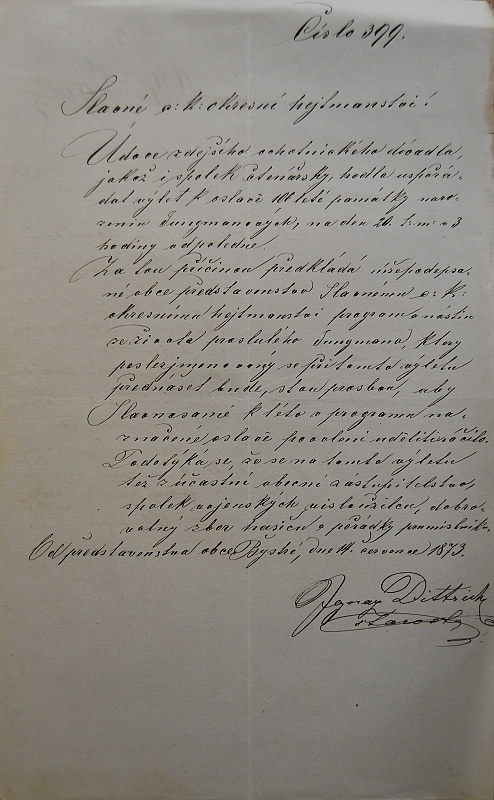 Číslo 399.
Slavné c: k: okresní hejtmanství!
Údové zdejšího ochotnického divadla,
jakož i spolek čtenářský, hodlá uspořá-
dat výlet k oslavě 100 leté památky naro-
zenin Jungmanových, na den 20. t: m: o 3
hodiny odpoledne.
Za tou příčinou předkládá nížepodepsa-
né obce představenstvo Slavnému c: k:
okresnímu hejtmanství program a nástin
ze života proslulého Jungmana, který
posléz jmenovaný se při tomto výletu
přednášet bude, s tou prosbou, aby
Slavnosamé k této v programu na-
značené oslavě povolení uděliti ráčilo.
Dodotýká se, že se na tomto výletu
též zúčastní obecní zastupitelstvo,
spolek vojenských vysloužilců, dobro-
volný sbor hasičů a pořádky
Od představenstva obce Bystré, dne 14. července 1873.
Ignaz Dittrich
Starosta